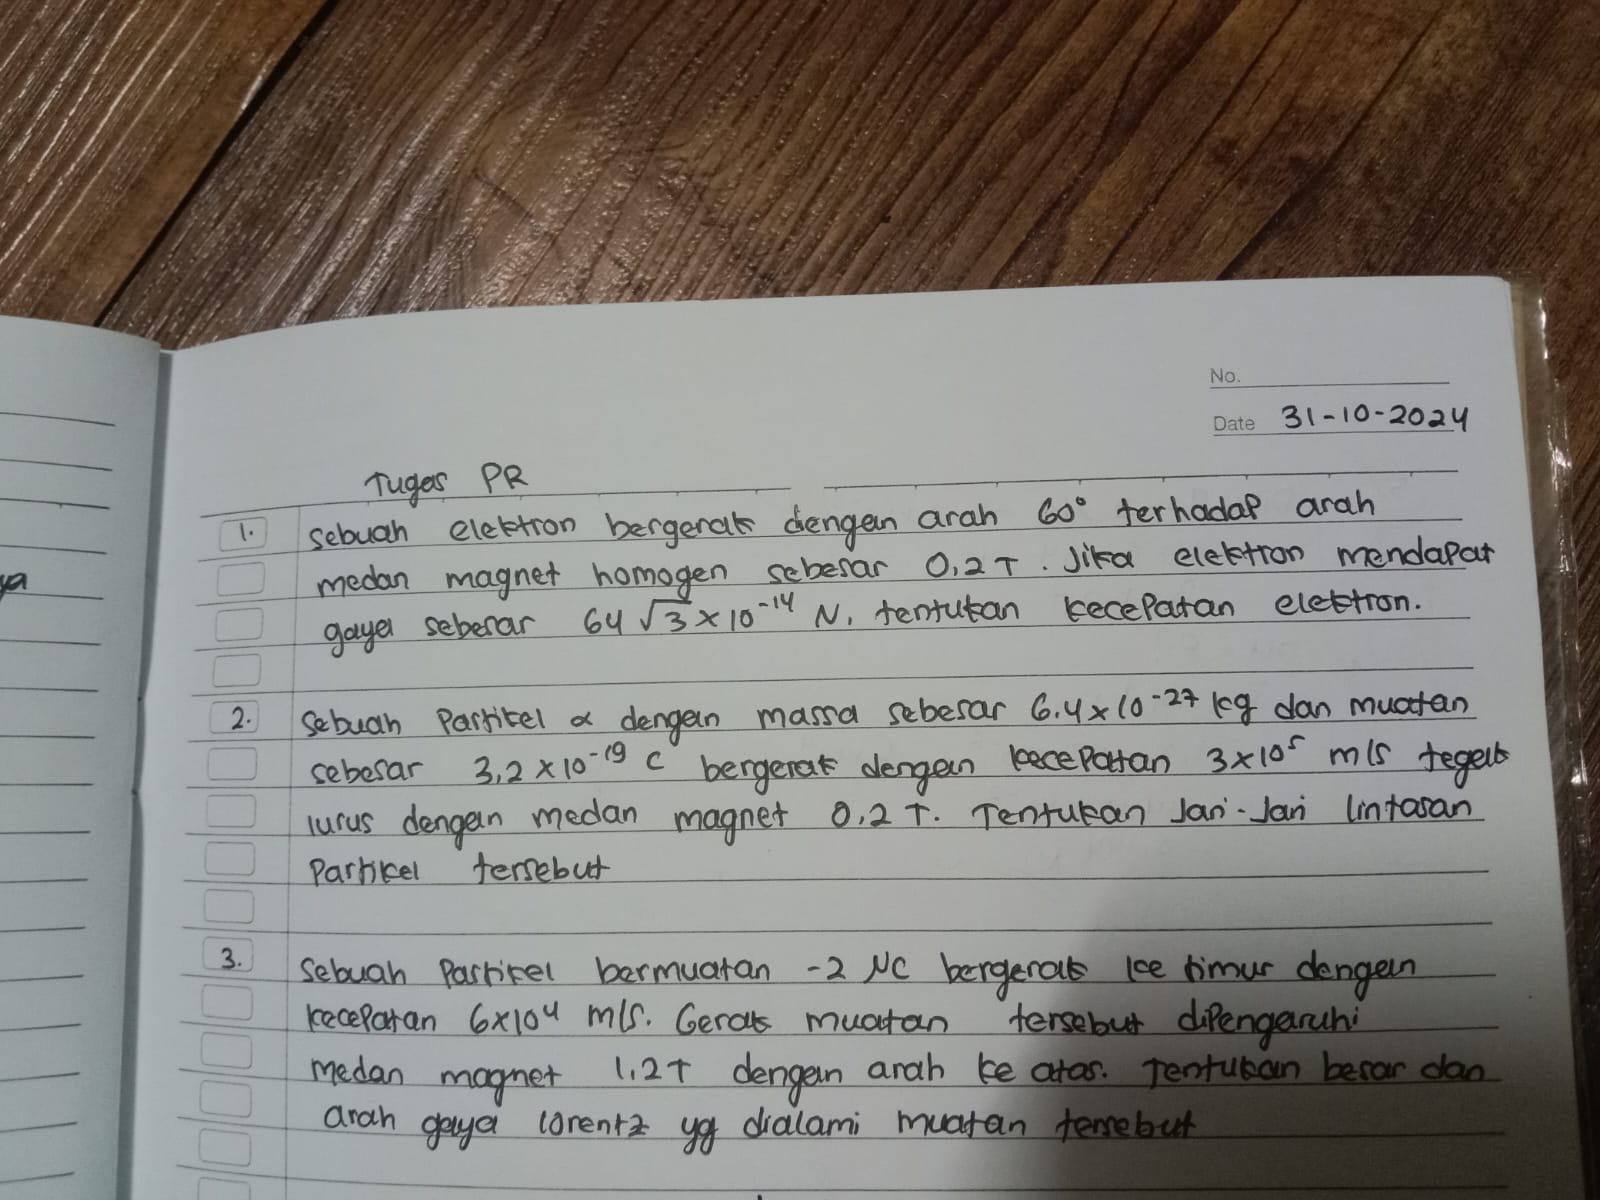 No.
Date 31-10-2024
Tugas PR
1. Sebuah elektron bergerak dengan arah 60° terhadap arah
medan magnet homogen sebesar 0,2 T. Jika elektron mendapat
ya
gaya sebesar 64 √3 × 10⁻¹⁴ N, tentukan kecepatan elektron.
2. Sebuah Partikel α dengan massa sebesar 6.4 × 10⁻²⁷ kg dan muatan
sebesar 3,2 × 10⁻¹⁹ C bergerak dengan kecepatan 3×10⁵ m/s tegak
lurus dengan medan magnet 0,2 T. Tentukan Jari-Jari lintasan
Partikel tersebut
3. Sebuah Partikel bermuatan -2 μC bergerak ke timur dengan
kecepatan 6×10⁴ m/s. Gerak muatan tersebut dipengaruhi
medan magnet 1,2T dengan arah ke atas. Tentukan besar dan
arah gaya lorentz yg dialami muatan tersebut